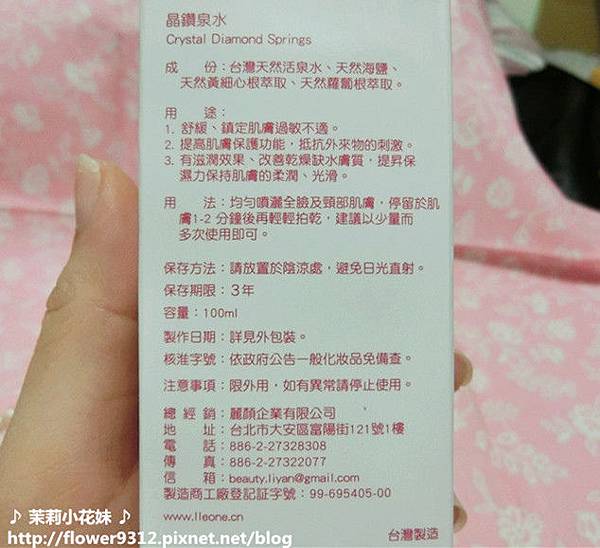 晶鑽泉水
Crystal Diamond Springs
成　份：台灣天然活泉水、天然海鹽、
天然黃細心根萃取、天然蘿蔔根萃取。
用　途：
1. 舒緩、鎮定肌膚過敏不適。
2. 提高肌膚保護功能，抵抗外來物的刺激。
3. 有滋潤效果、改善乾燥缺水膚質，提昇保
濕力保持肌膚的柔潤、光滑。
用　法：均勻噴灑全臉及頸部肌膚，停留於肌
膚1-2 分鐘後再輕輕拍乾，建議以少量而
多次使用即可。
保存方法：請放置於陰涼處，避免日光直射。
保存期限：3年
容量：100ml
製作日期：詳見外包裝。
核准字號：依政府公告一般化妝品免備查。
注意事項：限外用，如有異常請停止使用。
總 經 銷：麗顏企業有限公司
地　　址：台北市大安區富陽街121號1樓
電　　話：886-2-27328308
傳　　真：886-2-27322077
信　　箱：beauty.liyan@gmail.com
製造商工廠登記証字號：99-695405-00
www.lleone.cn
台灣製造
♪ 茉莉小花妹 ♪
http://flower9312.pixnet.net/blog